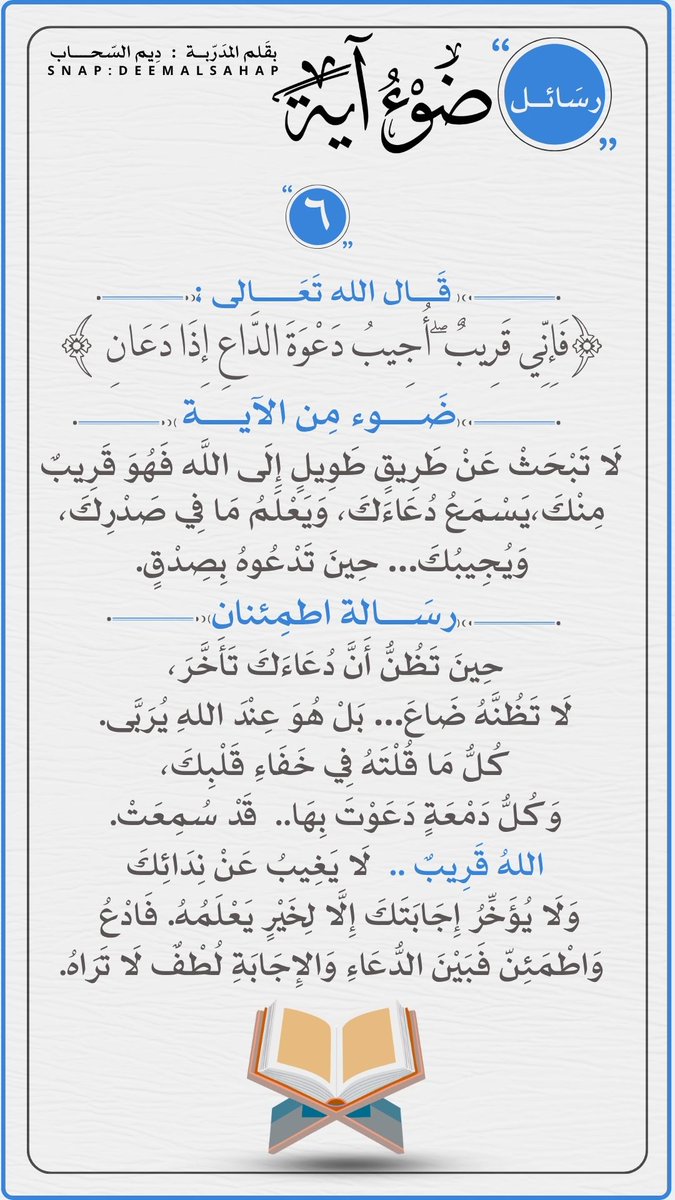 بقَلم المدَربّة : دِيم السّحـــاب
SNAP:DEEMALSAHAP
رسَائــل
ضَوْءُ آية
٦
قَــال الله تَعَــــالى :
﴿فَإِنِّي قَرِيبٌ ۖ أُجِيبُ دَعْوَةَ الدَّاعِ إِذَا دَعَانِ ﴾
ضَـــــوء مِن الآيــــة
لَا تَبْحَثْ عَنْ طَرِيقٍ طَوِيلٍ إِلَى اللَّه فَهُوَ قَرِيبٌ
مِنْكَ،يَسْمَعُ دُعَاءَكَ، وَيَعْلَمُ مَا فِي صَدْرِكَ،
وَيُجِيبُكَ... حِينَ تَدْعُوهُ بِصِدْقٍ.
رسَــــالة اطمِئنان
حِينَ تَظُنُّ أَنَّ دُعَاءَكَ تَأَخَّرَ،
لَا تَظُنَّهُ ضَاعَ... بَلْ هُوَ عِنْدَ اللهِ يُرَبَّى.
كُلُّ مَا قُلْتَهُ فِي خَفَاءِ قَلْبِكَ،
وَكُلُّ دَمْعَةٍ دَعَوْتَ بِهَا.. قَدْ سُمِعَتْ.
اللهُ قَرِيبٌ .. لَا يَغِيبُ عَنْ نِدَائِكَ
وَلَا يُؤَخِّرُ إِجَابَتَكَ إِلَّا لِخَيْرٍ يَعْلَمُهُ. فَادْعُ
وَاطْمَئِنّ فَبَيْنَ الدُّعَاءِ وَالإِجَابَةِ لُطْفٌ لَا تَرَاهُ.